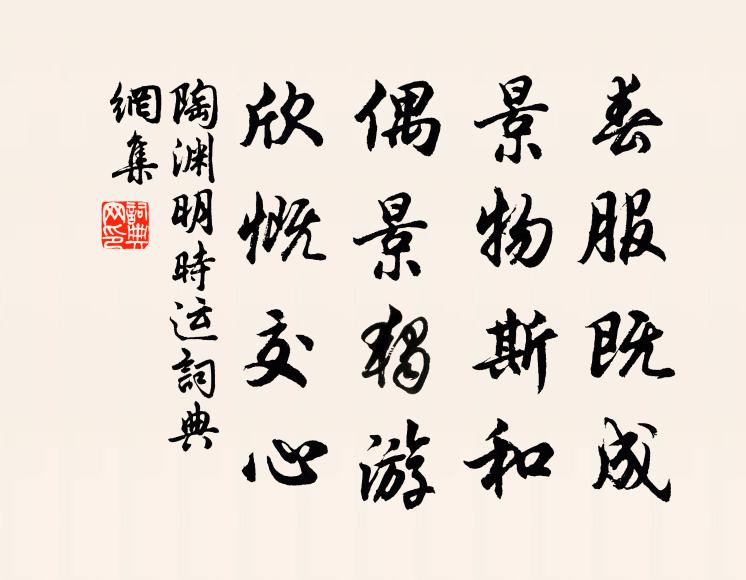 春服既成
景物斯和
偶景独游
欣慨交心
陶渊明時运詞典
網集
詞典網印